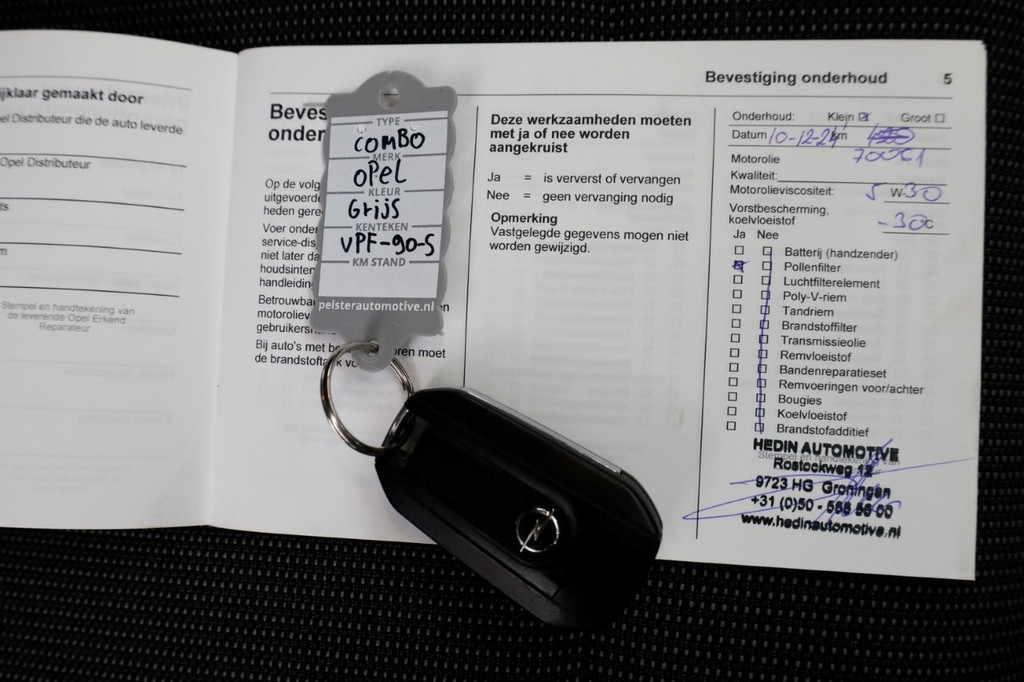 ijklaar gemaakt door
el Distributeur die de auto leverde
Opel Distributeur
ts
Stempel en handtekening van
de leverende Opel Erkend
Reparateur
Bevestiging onderhoud 5
Beves
onder
Op de volg
uitgevoerde
heden gere
Voer onder
service-dis
niet later da
houdsinter
handleiding
Betrouwba
motoroliev
gebruikersh
Bij auto's met be oren moet
de brandstofta
TYPE
COMBO
MERK
OPEL
KLEUR
GRIJS
KENTEKEN
VPF-90-S
KM STAND
pelsterautomotive.nl
Deze werkzaamheden moeten
met ja of nee worden
aangekruist
Ja = is ververst of vervangen
Nee = geen vervanging nodig
Opmerking
Vastgelegde gegevens mogen niet
worden gewijzigd.
Onderhoud: Klein Groot
Datum 10-12-24 km
70061
Motorolie
Kwaliteit:
Motorolieviscositeit: 5 W-30
Vorstbescherming,
koelvloeistof -30c
Ja Nee
Batterij (handzender)
Pollenfilter
Luchtfilterelement
Poly-V-riem
Tandriem
Brandstoffilter
Transmissieolie
Remvloeistof
Bandenreparatieset
Remvoeringen voor/achter
Bougies
Koelvloeistof
Brandstofadditief
HEDIN AUTOMOTIVE
Stempel en handtekening van
Rostockweg 12
9723 HG Groningen
+31 (0)50 - 568 56 00
www.hedinautomotive.nl